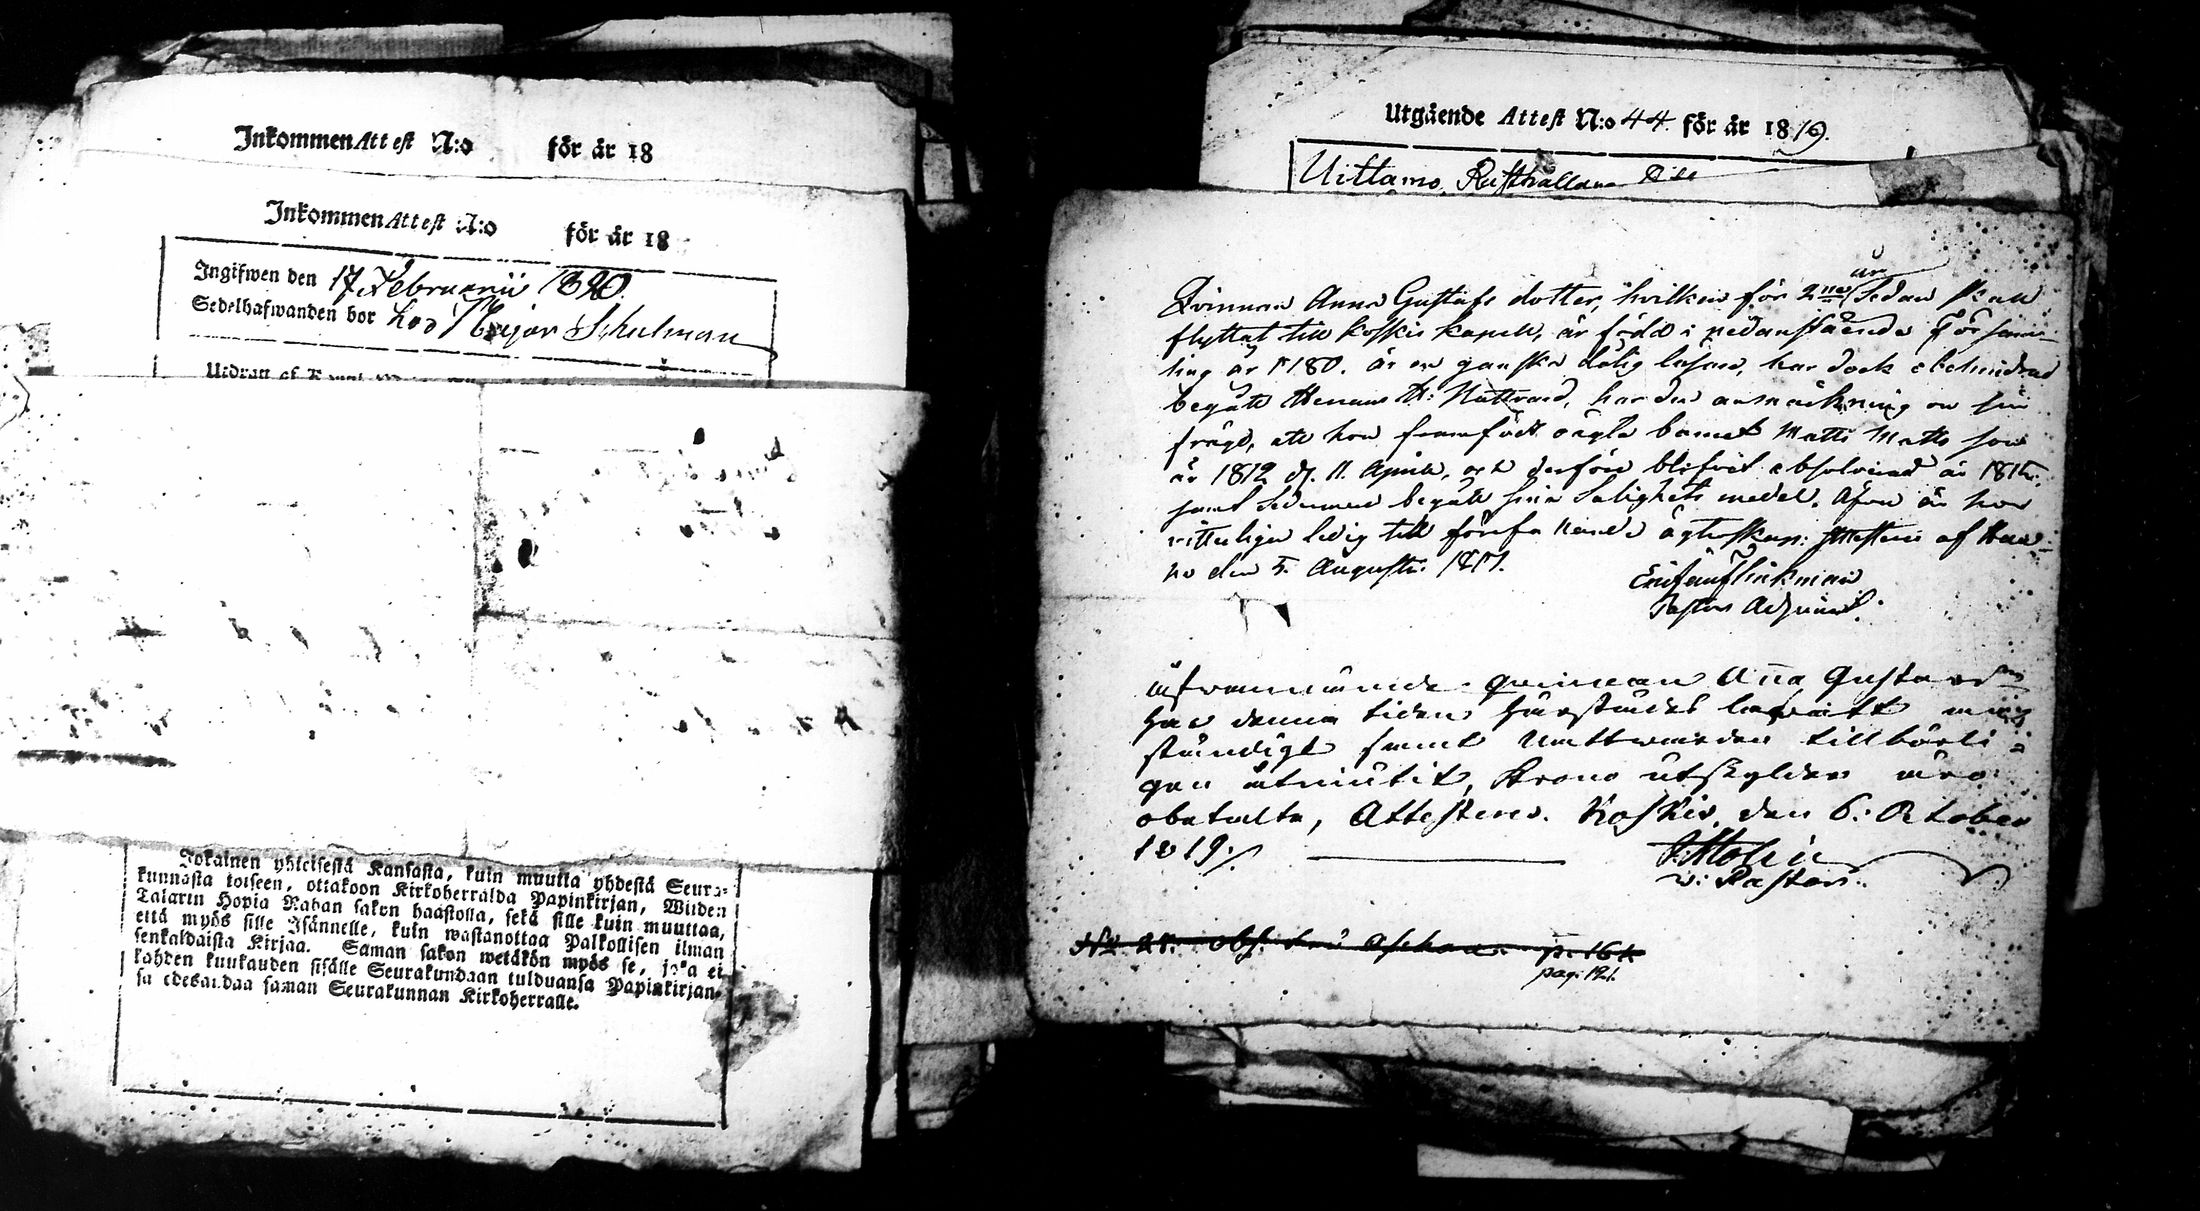 Inkommen Attest N:o för år 18
Inkommen Attest N:o för år 18
Ingifwen den 17 Februarii 1820.
Sedelhafwanden bor hos Major Schulman
Jokainen yhteisestä Kansasta, kuin muutta yhdestä Seura-
kunnasta toiseen, ottakoon Kirkoherralda Papinkirjan, Wiiden
Talarin Hopia Rahan sakon haastolla, sekä sille kuin muuttaa,
että myös sille Isännelle, kuin wastanottaa Palkollisen ilman
senkaldaista Kirjaa. Saman sakon wetäkön myös se, joka ei
kahden kuukauden sisälle Seurakundaan tulduansa Papinkirjan-
sa edesandaa saman Seurakunnan Kirkoherralle.
Utgående Attest N:o 44. för år 1819.
Uittamo, Rusthållare
år
Qvinnan Anna Gustafs dotter, hvilken för 2ne sedan skall
flyttat till Koskis kapell, är född i nedanstående Försam-
ling år 1780. är en ganska dålig läsare, har dock obehindrad
begått Herrans H: Nattvard, har den anmärkning on sin
frägd, att hon framfödt oägta barnet Matts Matts son
år 1812 d. 11. April, och derföre blifvit absolverad år 1815,
samt sedermera begått sina Salighets medel. Äfven är hon
vitterligen ledig till förefallande ägtenskap: Attesteras af Haa-
no den 5. Augusti 1817.
Pastors Adjunct.
ofvannämnde qvinnan Aña Gustavsdr
har denna tiden härstädes lefvatt an
ständigt samt Nattvarden tillbörli
gen åtniutit, Krono utskylder äro
obetalte, Attesteras. Koskis, den 6: October
1819./.
J. Molin
v: Pastor.
No 25. obs.
pag. 121.